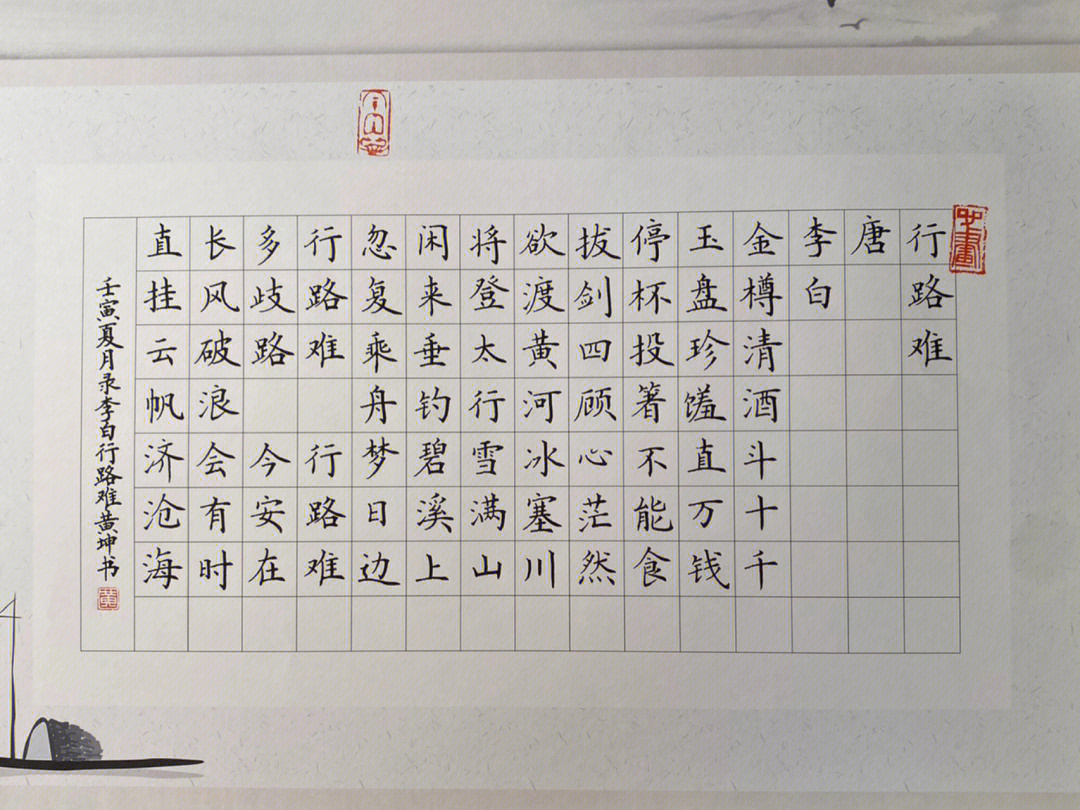 行路难
唐
李白
金樽清酒斗十千
玉盘珍馐直万钱
停杯投箸不能食
拔剑四顾心茫然
欲渡黄河冰塞川
将登太行雪满山
闲来垂钓碧溪上
忽复乘舟梦日边
行路难 行路难
多歧路 今安在
长风破浪会有时
直挂云帆济沧海
壬寅夏月录李白行路难黄坤书
黄